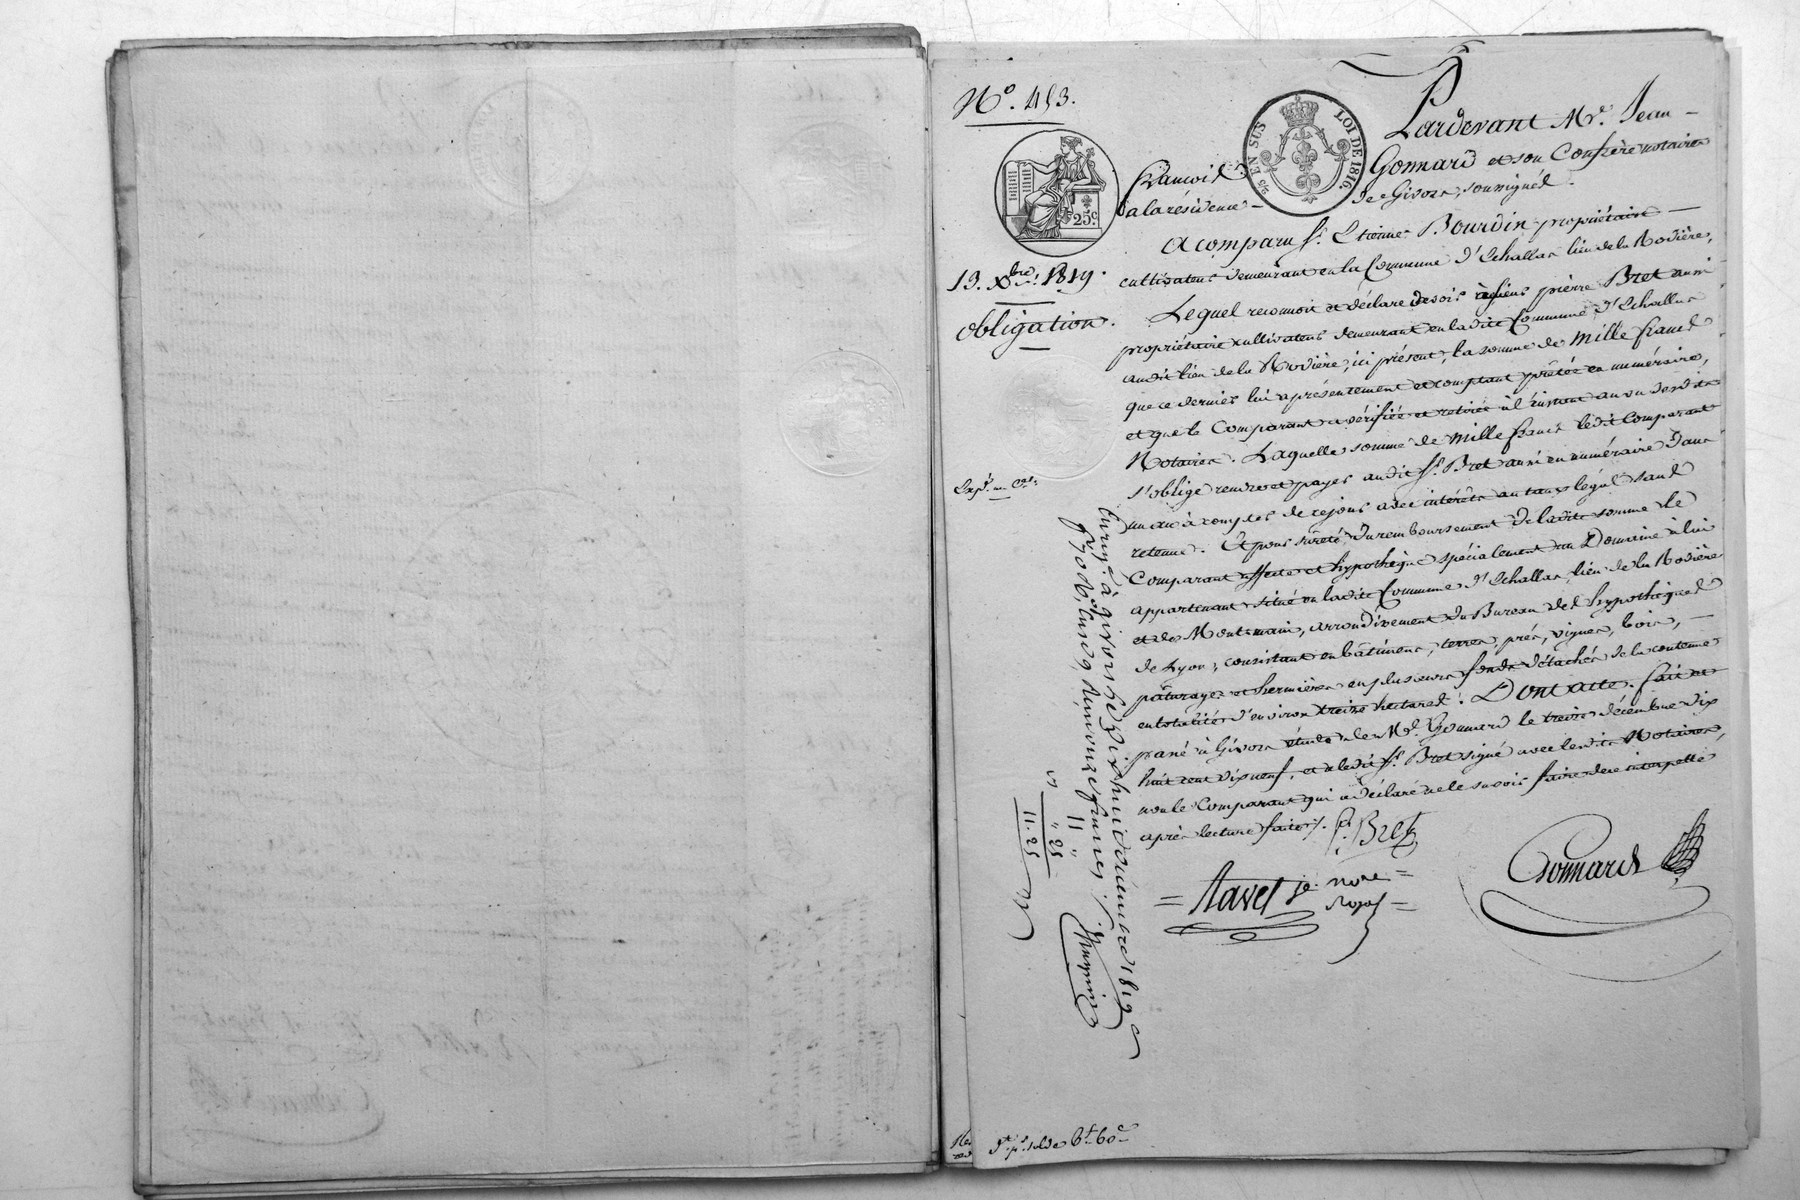 N° 453.
25 EN SUS
LOI DE 1816.
25c.
Pardevant Me. Jean-
François Gonnard et son Confrère notaires
à la résidence de Givors, soussignés.
A comparu Sr. Etienne Bourdin propriétaire
cultivateur demeurant en la Commune d'Echallas lieu de la Rodière,
13. Xbre. 1819.
obligation.
Lequel reconnoit et déclare devoir à pierre Bret aussi
propriétaire cultivateur demeurant en ladite Commune d'Echallas
audit lieu de la Rodière, ici présent, la somme de mille francs
que ce dernier lui a présentement et comptant prêtée en numéraire,
et que le Comparant a vérifiée et retirée à l'instant au vu desdits
Notaires. Laquelle somme de mille francs ledit Comparant
s'oblige rendre et payer audit Sr. Bret aussi en numéraire dans
un an à compter de ce jour avec intérêts au taux légal sans
retenue. Et pour sûreté du remboursement de ladite somme le
Comparant affecte et hypothèque spécialement un Domaine à lui
appartenant situé en ladite Commune d'Echallas, lieu de la Rodière
et de Montmain, arrondissement du Bureau des hypothèques
de Lyon, consistant en bâtimens, terres, prés, vignes, bois,
pâturages et hermières en plusieurs fonds détachés de la contenue
en totalité d'environ treize hectares. Dont acte. fait et
passé à Givors étude de Me. Gonnard le treize décembre dix
huit cent dix neuf, et a ledit Sr. Bret signé avec lesdits Notaires,
non le Comparant qui a déclaré ne le savoir faire de ce interpellé
après lecture faite.
Bret
Gonnard
= Ravel je. nore =
Royal =
Enregé. à givors le dix huit décembre 1819
11 "
" 25
11.25
6f. 60c